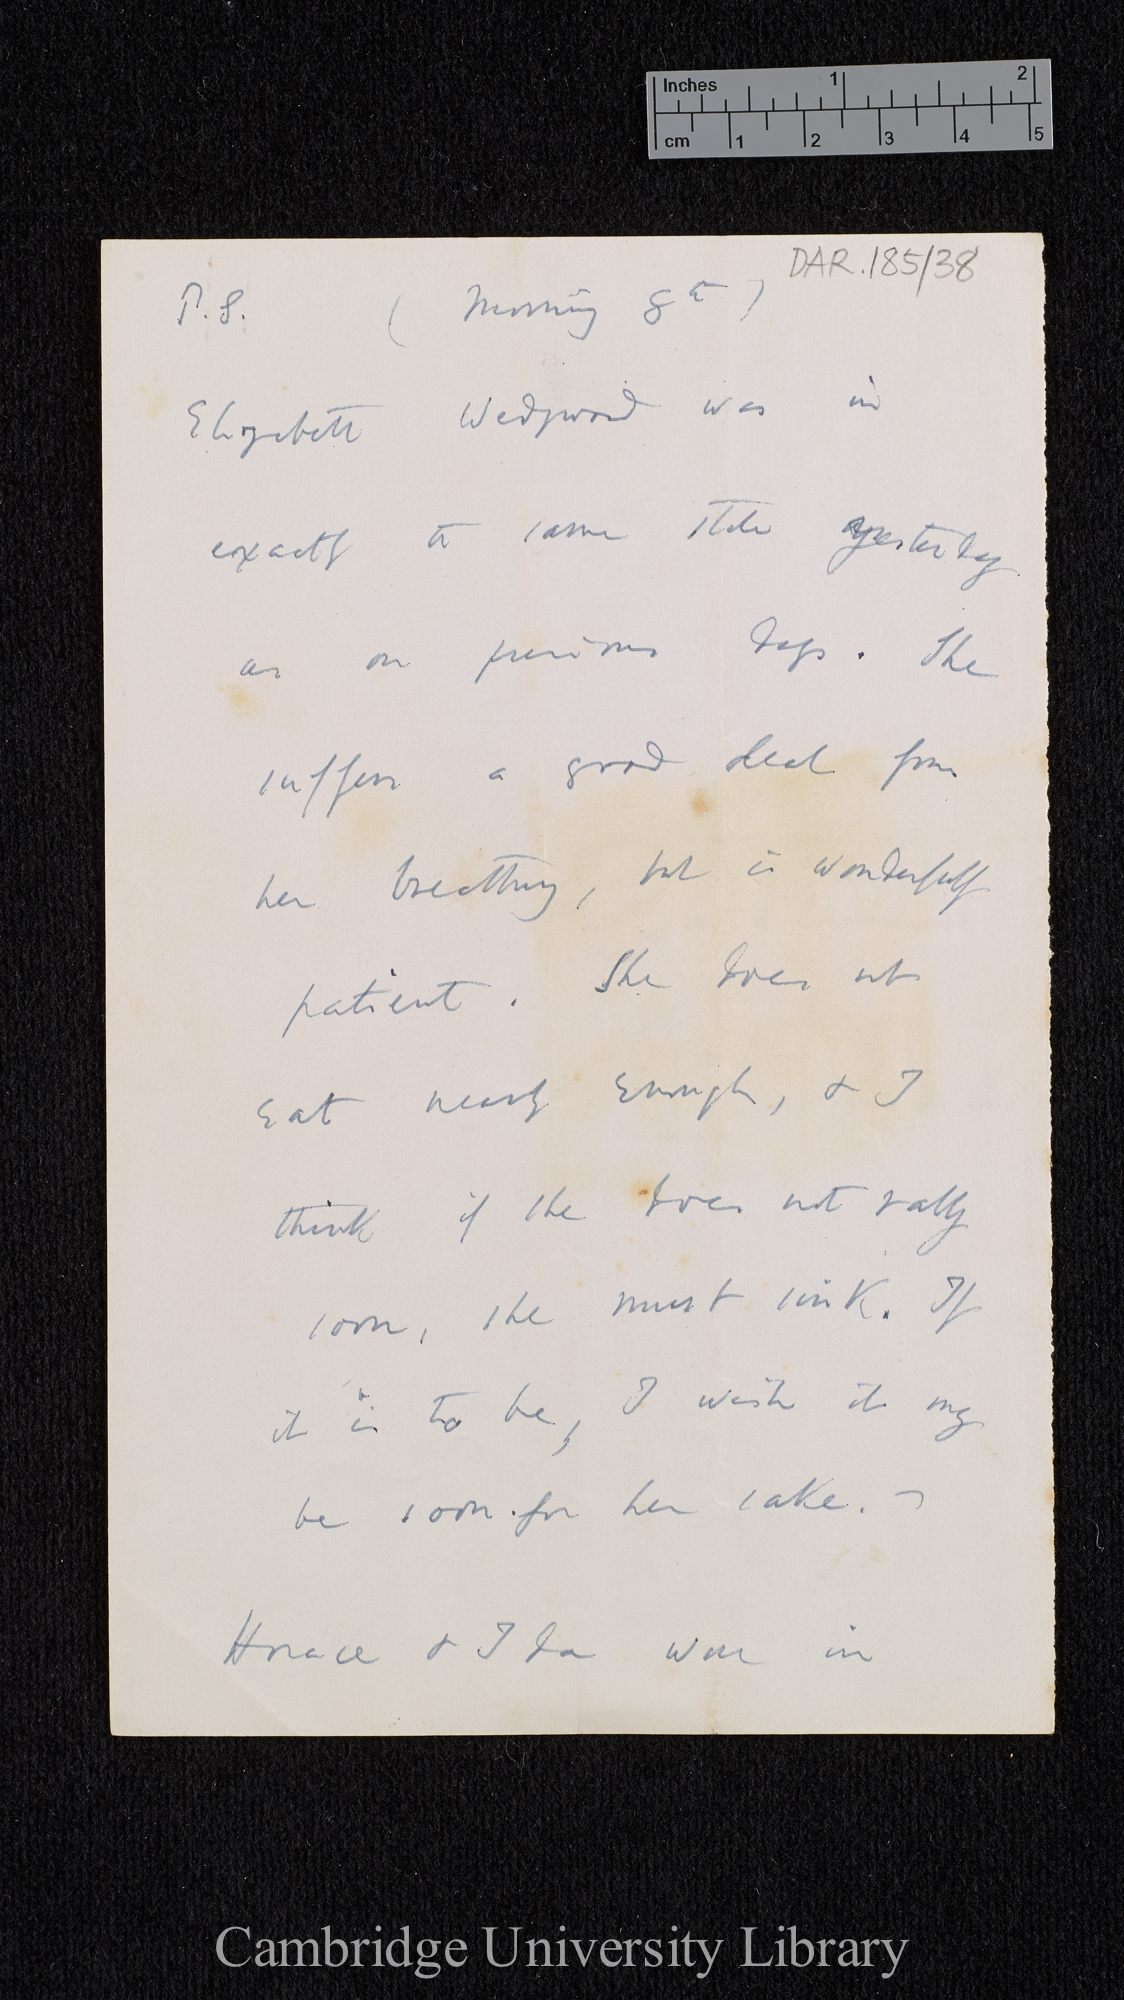 Inches 1 2
cm 1 2 3 4 5
DAR.185/38
P.S. (Morning 8th)
Elizabeth Wedgwood was in
exactly the same state yesterday
as on previous days. She
suffers a good deal from
her breathing, but is wonderfully
patient. She does not
eat nearly enough, & I
think if she does not rally
soon, she must sink. If
it is to be, I wish it may
be soon for her sake. —
Horace & Ida were in
Cambridge University Library